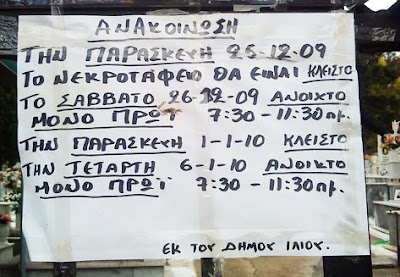 ΑΝΑΚΟΙΝΩΣΗ
ΤΗΝ ΠΑΡΑΣΚΕΥΗ 25-12-09
ΤΟ ΝΕΚΡΟΤΑΦΕΙΟ ΘΑ ΕΙΝΑΙ ΚΛΕΙΣΤΟ
ΤΟ ΣΑΒΒΑΤΟ 26-12-09 ΑΝΟΙΧΤΟ
ΜΟΝΟ ΠΡΩΪ 7:30 - 11:30πμ.
ΤΗΝ ΠΑΡΑΣΚΕΥΗ 1-1-10 ΚΛΕΙΣΤΟ
ΤΗΝ ΤΕΤΑΡΤΗ 6-1-10 ΑΝΟΙΧΤΟ
ΜΟΝΟ ΠΡΩΪ 7:30 - 11:30πμ.
ΕΚ ΤΟΥ ΔΗΜΟΥ ΙΛΙΟΥ.